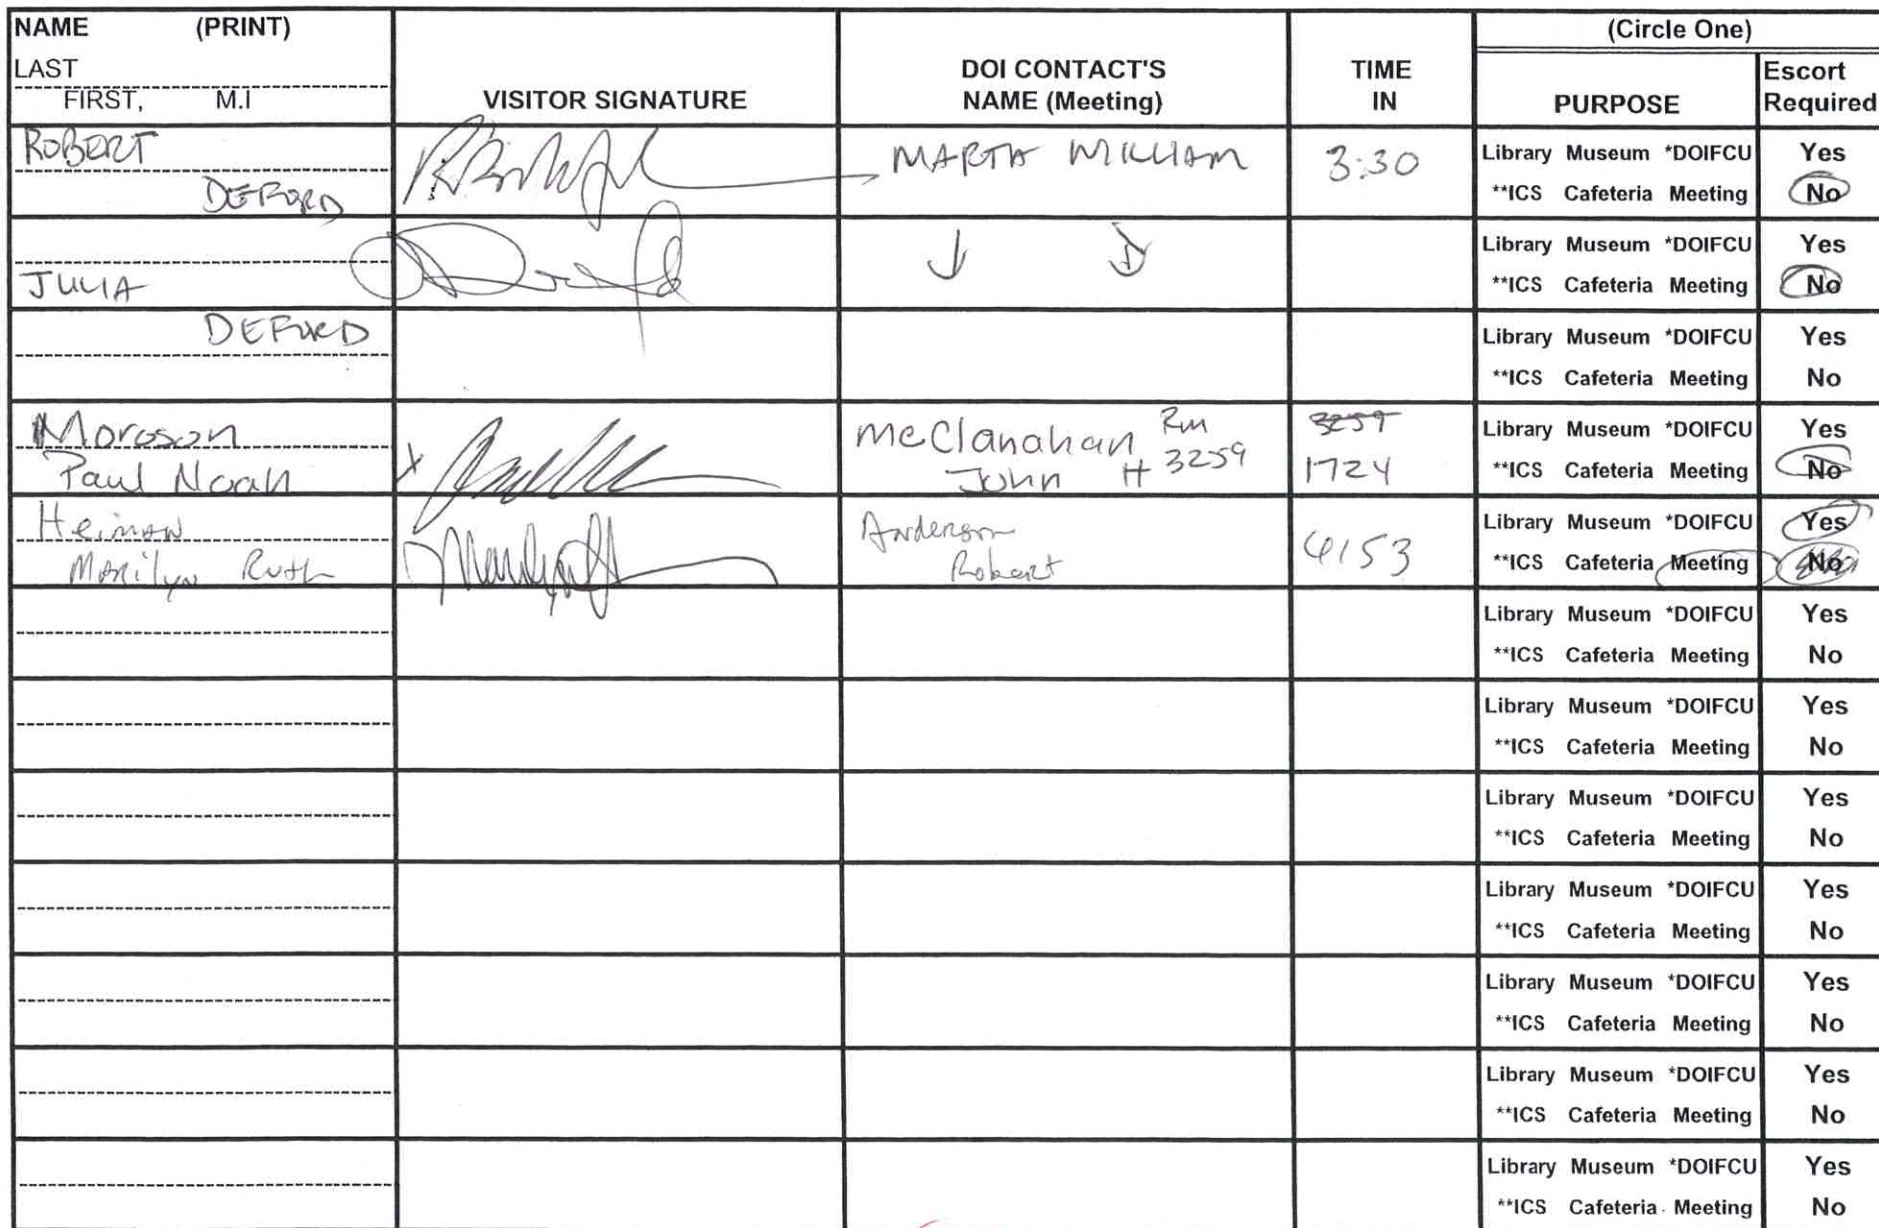 NAME (PRINT)
LAST
FIRST, M.I
VISITOR SIGNATURE
DOI CONTACT'S
NAME (Meeting)
TIME
IN
(Circle One)
PURPOSE
Escort
Required
ROBERT
DEFORD
MARTA WILLIAM
3:30
Library Museum *DOIFCU Yes
**ICS Cafeteria Meeting No
JULIA
Library Museum *DOIFCU Yes
**ICS Cafeteria Meeting No
DEFORD
Library Museum *DOIFCU Yes
**ICS Cafeteria Meeting No
Moroson
Paul Noah
X
McClanahan Rm
John H 3259
3259
1724
Library Museum *DOIFCU Yes
**ICS Cafeteria Meeting No
Heiman
Marilyn Ruth
Anderson
Robert
4153
Library Museum *DOIFCU Yes
**ICS Cafeteria Meeting No
Library Museum *DOIFCU Yes
**ICS Cafeteria Meeting No
Library Museum *DOIFCU Yes
**ICS Cafeteria Meeting No
Library Museum *DOIFCU Yes
**ICS Cafeteria Meeting No
Library Museum *DOIFCU Yes
**ICS Cafeteria Meeting No
Library Museum *DOIFCU Yes
**ICS Cafeteria Meeting No
Library Museum *DOIFCU Yes
**ICS Cafeteria Meeting No
Library Museum *DOIFCU Yes
**ICS Cafeteria Meeting No